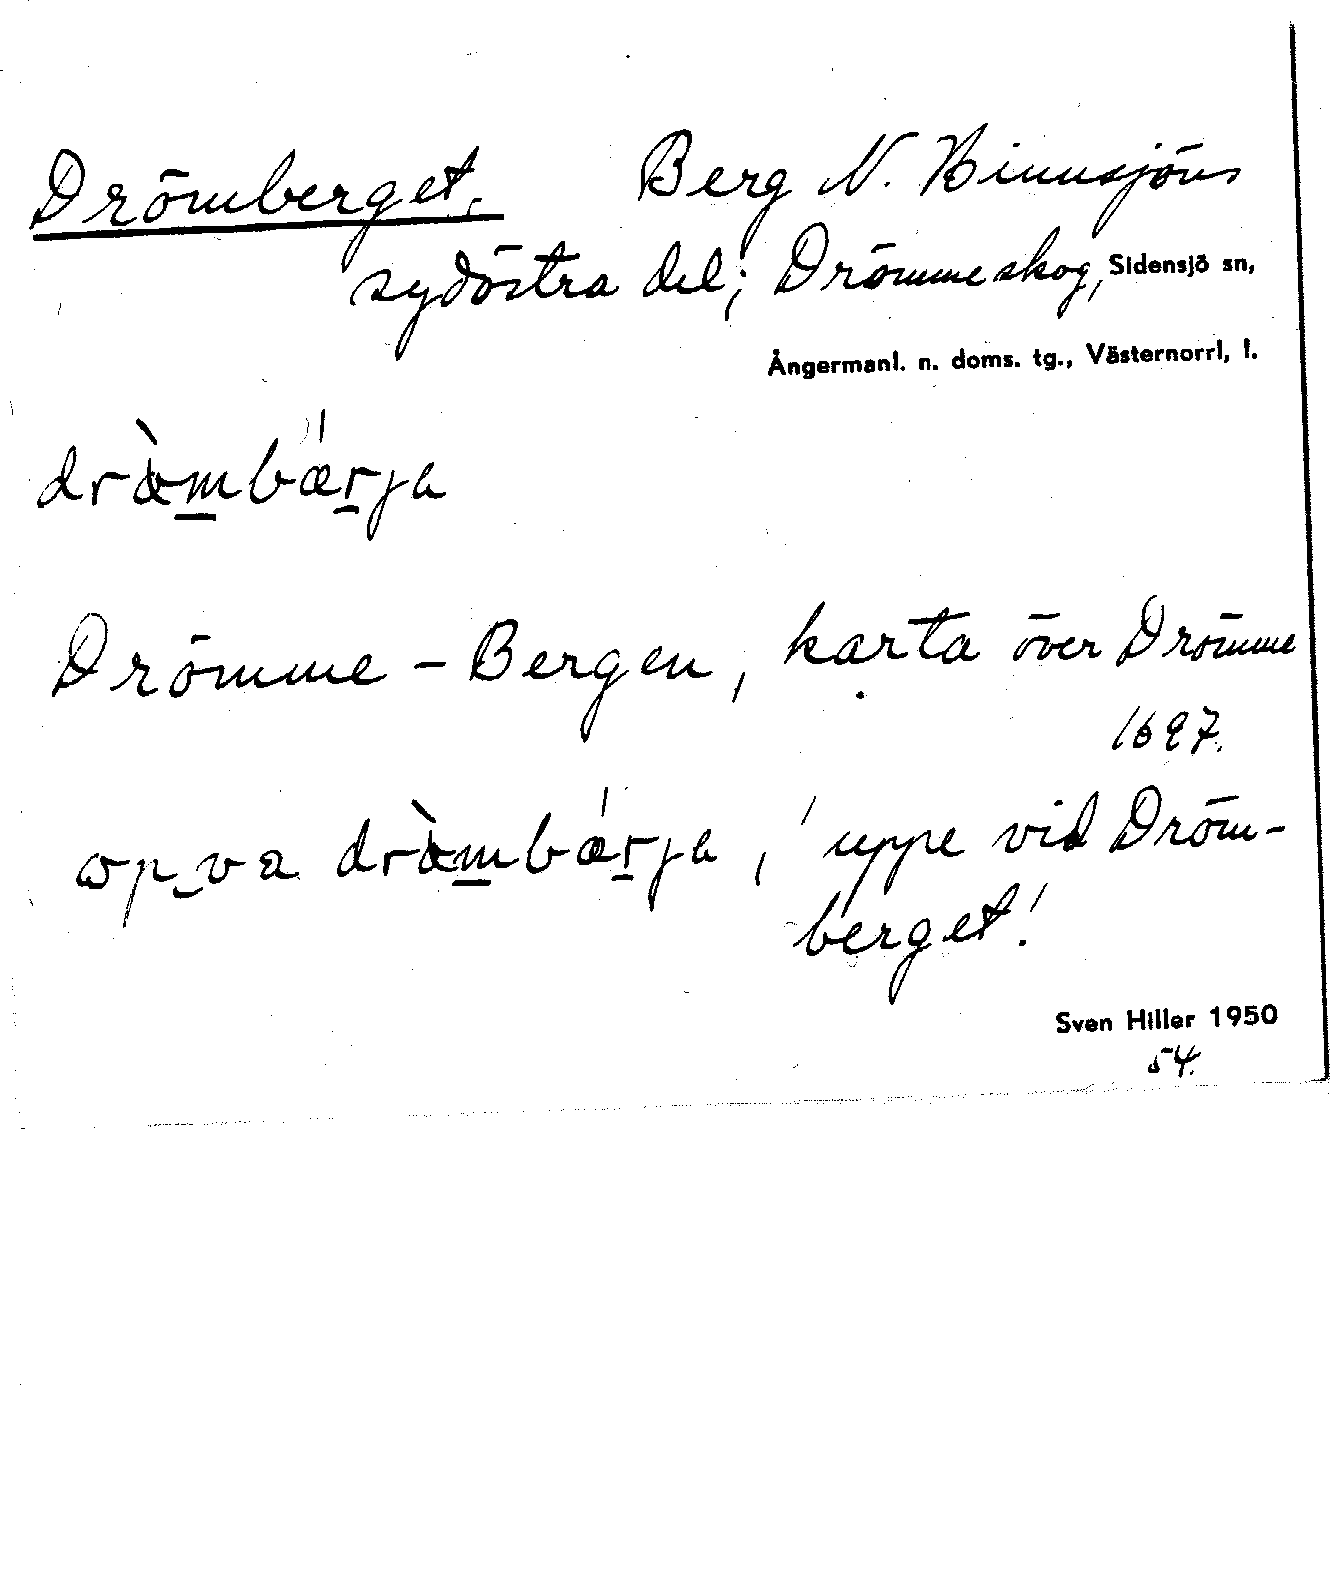 Drömberget. Berg N. Binnsjöns
sydöstra del; Drömme skog, Sidensjö sn,
Ångermanl. n. doms. tg., Västernorrl, l.
dràmbærja
Drömme-Bergen, karta över Drömme
1697.
va dràmbærja, 'uppe vid Dröm-
berget'.
Sven Hiller 1950
54.